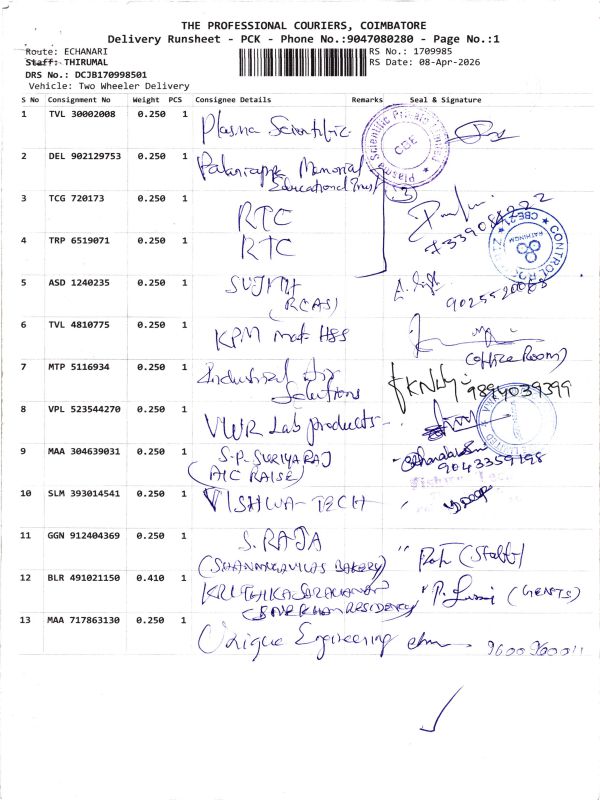 THE PROFESSIONAL COURIERS, COIMBATORE
Delivery Runsheet - PCK - Phone No.:9047080280 - Page No.:1
Route: ECHANARI RS No.: 1709985
Staff: THIRUMAL RS Date: 08-Apr-2026
DRS No.: DCJB170998501
Vehicle: Two Wheeler Delivery
S No Consignment No Weight PCS Consignee Details Remarks Seal & Signature
1 TVL 30002008 0.250 1 Plasma Scientific
Plasma Scientific Private CBE
2 DEL 902129753 0.250 1 Palaniappa Memorial
Educational Trust
3
3 TCG 720173 0.250 1 RTC
4 TRP 6519071 0.250 1 RTC
CONTROL
5 ASD 1240235 0.250 1 SUJITH
(RCAS)
6 TVL 4810775 0.250 1 KPM mat HSS
(Office Room)
7 MTP 5116934 0.250 1 Industrial Air
Solutions 9894039399
8 VPL 523544270 0.250 1 VWR Lab products
9 MAA 304639031 0.250 1 S.P. SURIYARAJ
(AIC RAISE) 9043359198
10 SLM 393014541 0.250 1 VISHWA-TECH
11 GGN 912404369 0.250 1 S. RAJA
(SHANMUGAVILAS BAKERY) (Staff)
12 BLR 491021150 0.410 1 KRITHIKA SARAVANAN
RESIDENCY)
13 MAA 717863130 0.250 1 Unique Engineering